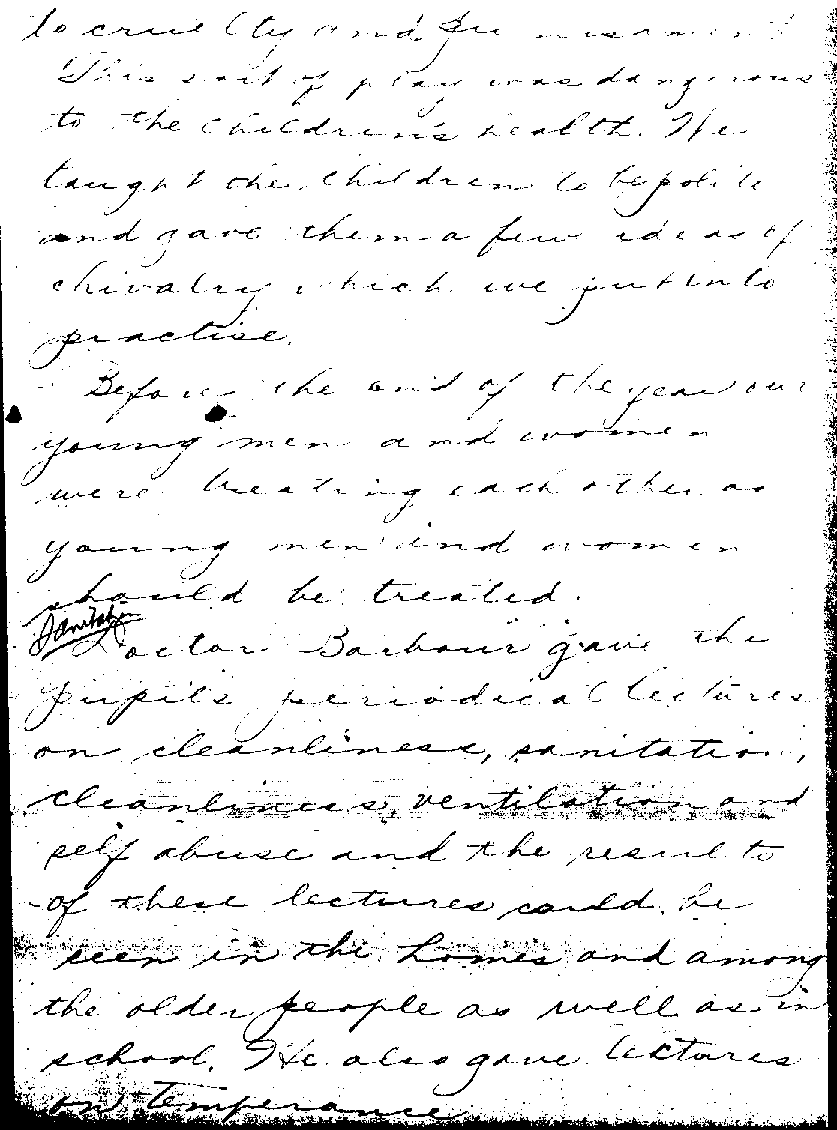 to cruelty and
This sort of play was dangerous
to the children's health. He
taught the children to be polite
and gave them a few ideas of
chivalry which we put into
practise.
Before the end of the year our
young men and women
were treating each other as
young men and women
should be treated.
Sanitation
Doctor Barbour gave the
pupils periodical lectures
on cleanliness, sanitation,
cleanliness, ventilation and
self abuse and the results
of these lectures could be
seen in the homes and among
the older people as well as in
school. He also gave lectures
on temperance